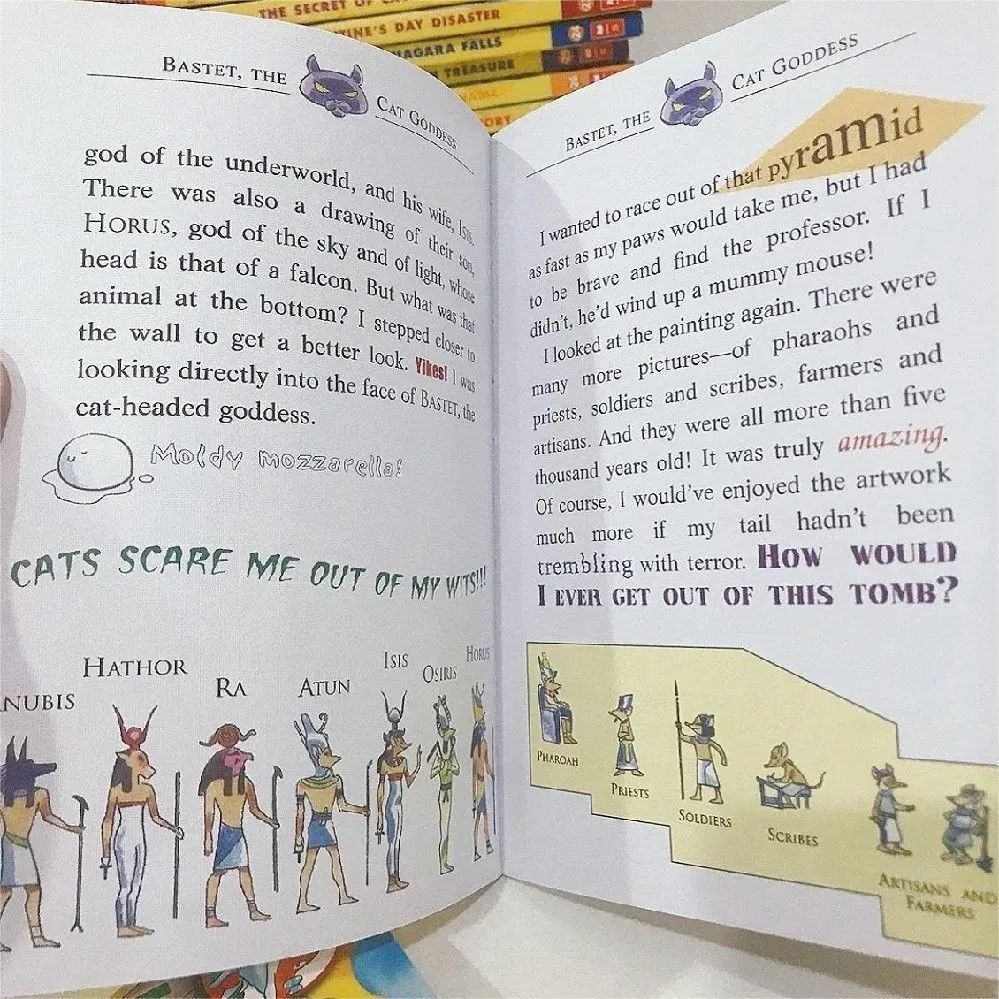 THE SECRET OF
TINE'S DAY DISASTER
AGARA FALLS
TREASURE
ORY
BASTET, THE
CAT GODDESS
god of the underworld, and his wife, ISIS.
There was also a drawing of their son,
HORUS, god of the sky and of light, whose
head is that of a falcon. But what was that
animal at the bottom? I stepped closer to
the wall to get a better look. Yikes! I was
looking directly into the face of BASTET, the
cat-headed goddess.
Moldy mozzarella!
CATS SCARE ME OUT OF MY WITS!!!
NUBIS
HATHOR
RA
ATUN
ISIS
OSIRIS
HORUS
BASTET, THE
CAT GODDESS
I wanted to race out of that pyramid
as fast as my paws would take me, but I had
to be brave and find the professor. If I
didn't, he'd wind up a mummy mouse!
I looked at the painting again. There were
many more pictures—of pharaohs and
priests, soldiers and scribes, farmers and
artisans. And they were all more than five
thousand years old! It was truly amazing.
Of course, I would've enjoyed the artwork
much more if my tail hadn't been
trembling with terror. HOW WOULD
I EVER GET OUT OF THIS TOMB?
PHAROAH
PRIESTS
SOLDIERS
SCRIBES
ARTISANS AND
FARMERS